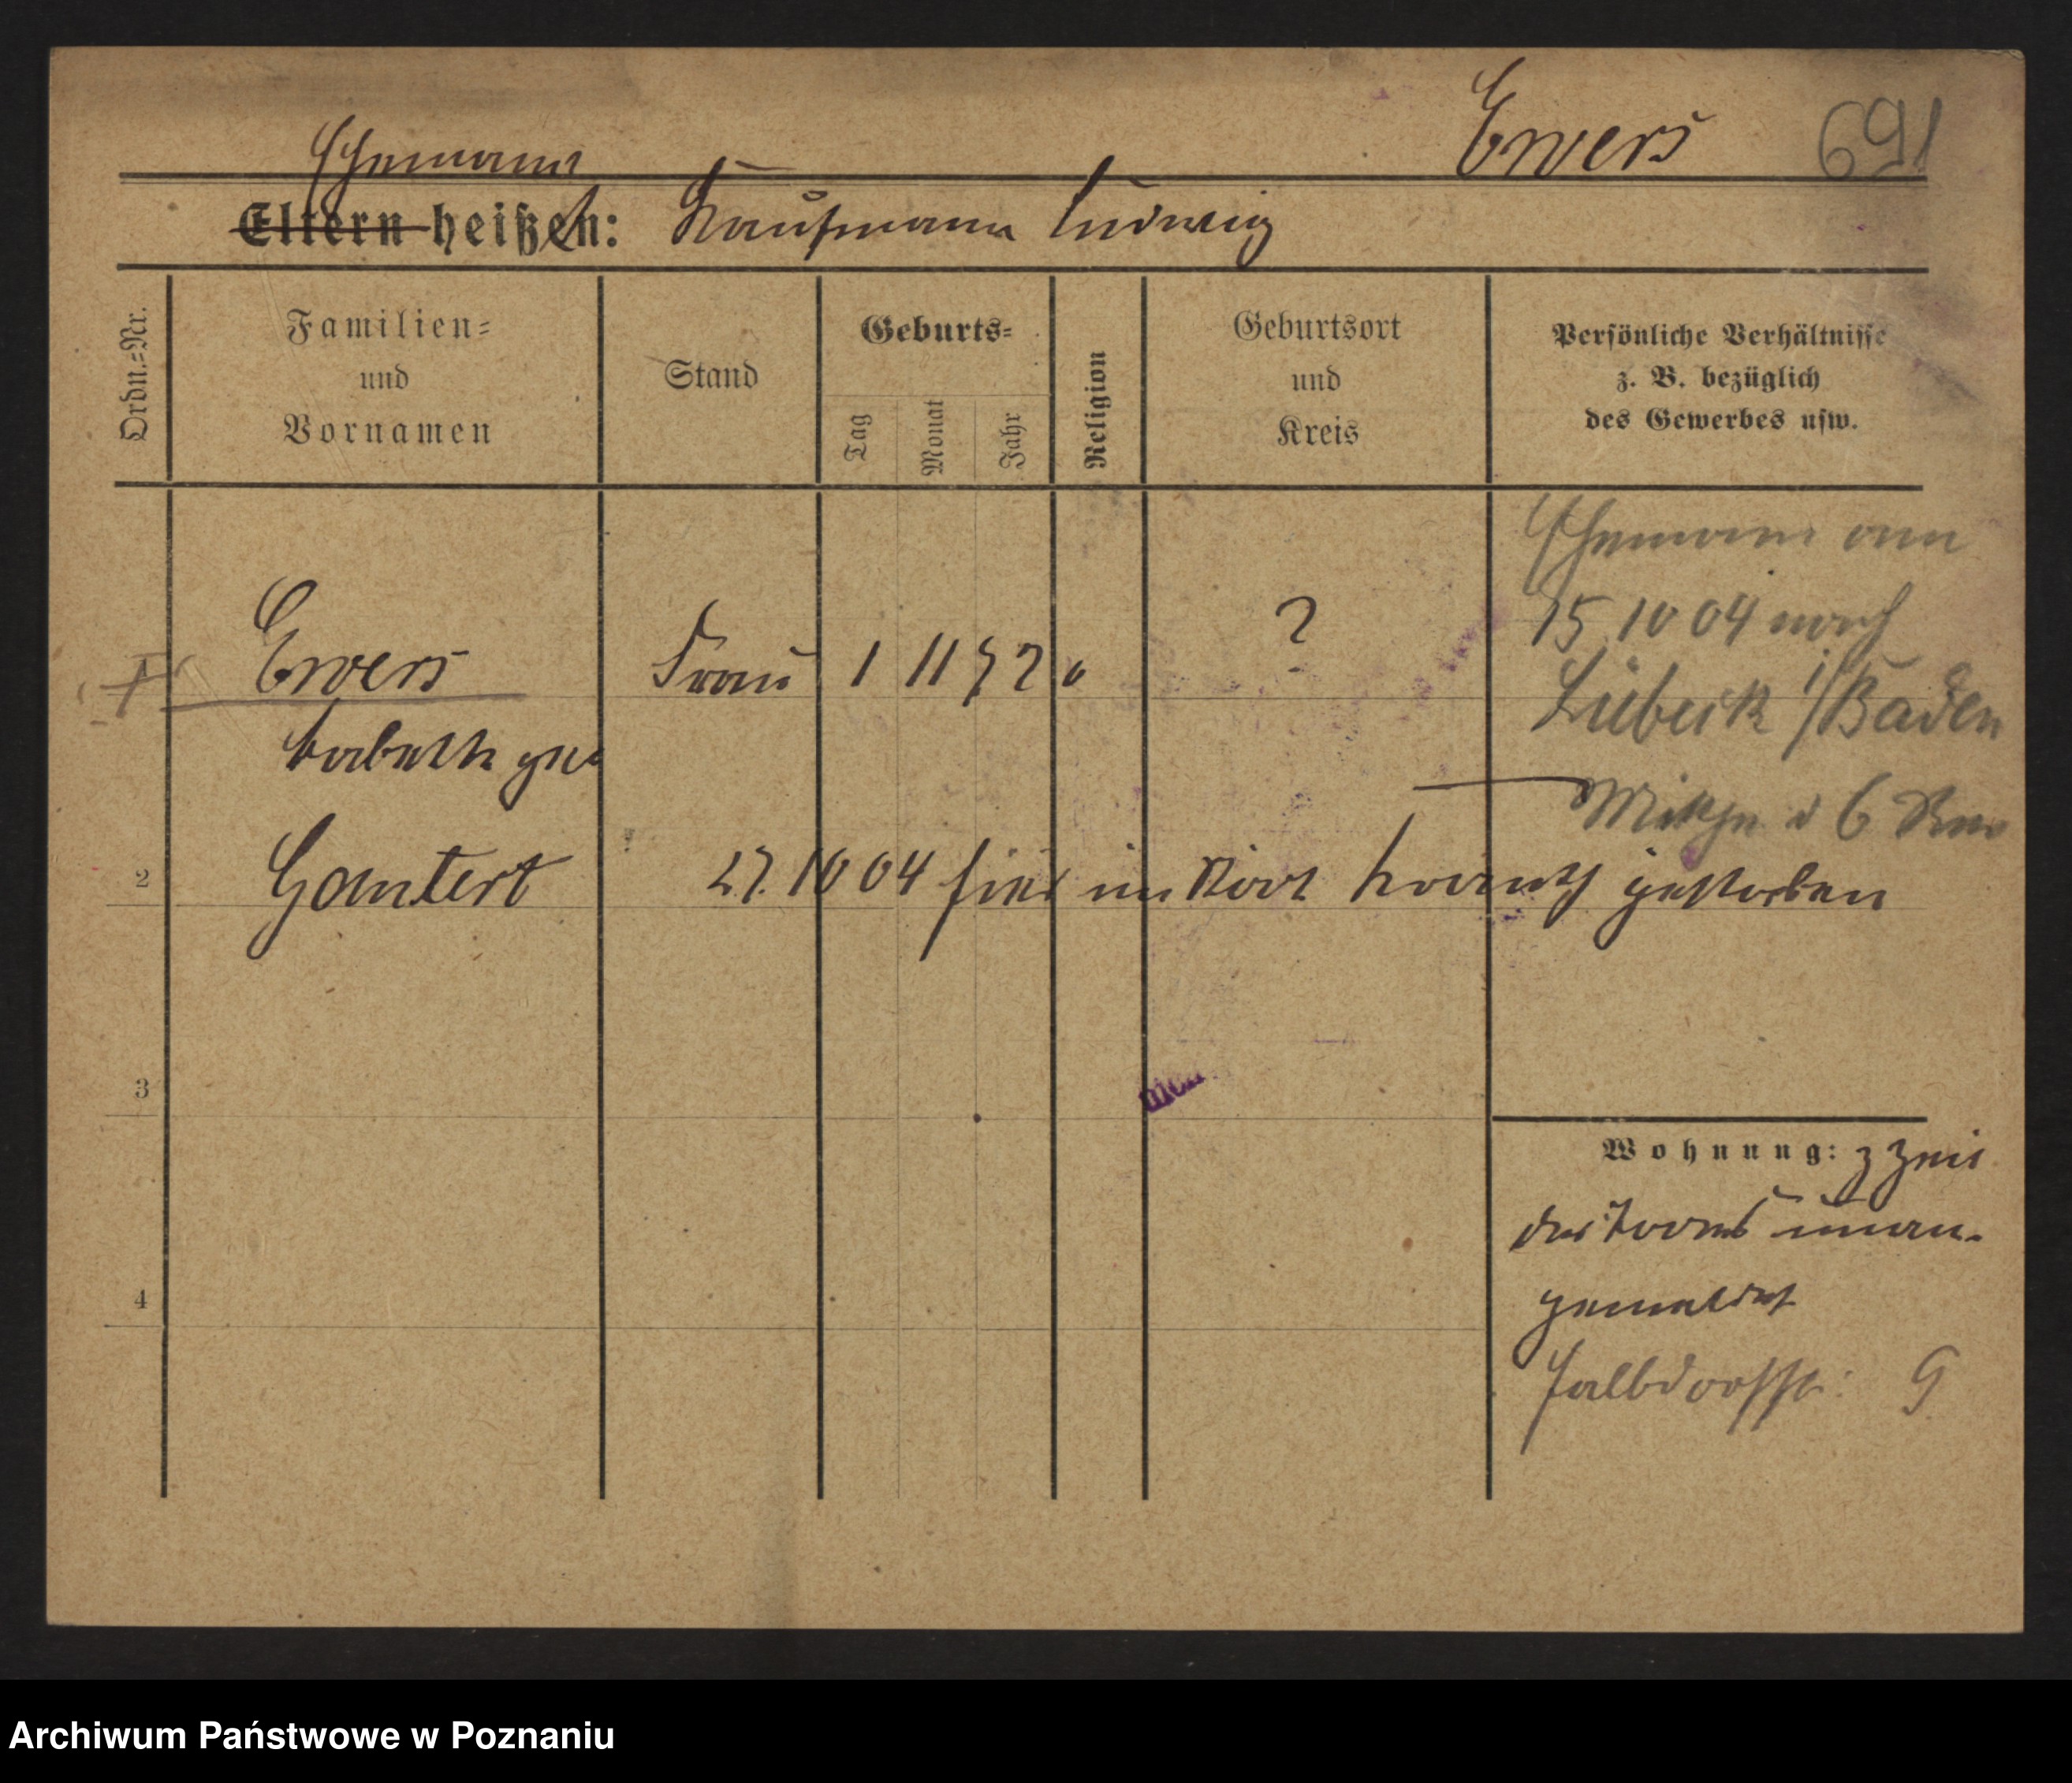 Ewers 691
Ehemann
Eltern heißen: Kaufmann Ludwig
Ordn.=Nr.
Familien=
und
Vornamen
Stand
Geburts=
Tag
Monat
Jahr
Religion
Geburtsort
und
Kreis
Persönliche Verhältnisse
z. B. bezüglich
des Gewerbes usw.
Ehemann am
15 10 04 nach
Lübeck i/Baden
1 Ewers Frau 1 11 72 ?
Babeth geb
6
2 Gantert 27. 10 04 hier im gestorben
3
4
Wohnung: z Zeit
des Todes unan-
gemeldet
Halbdorfstr: 9
Archiwum Państwowe w Poznaniu